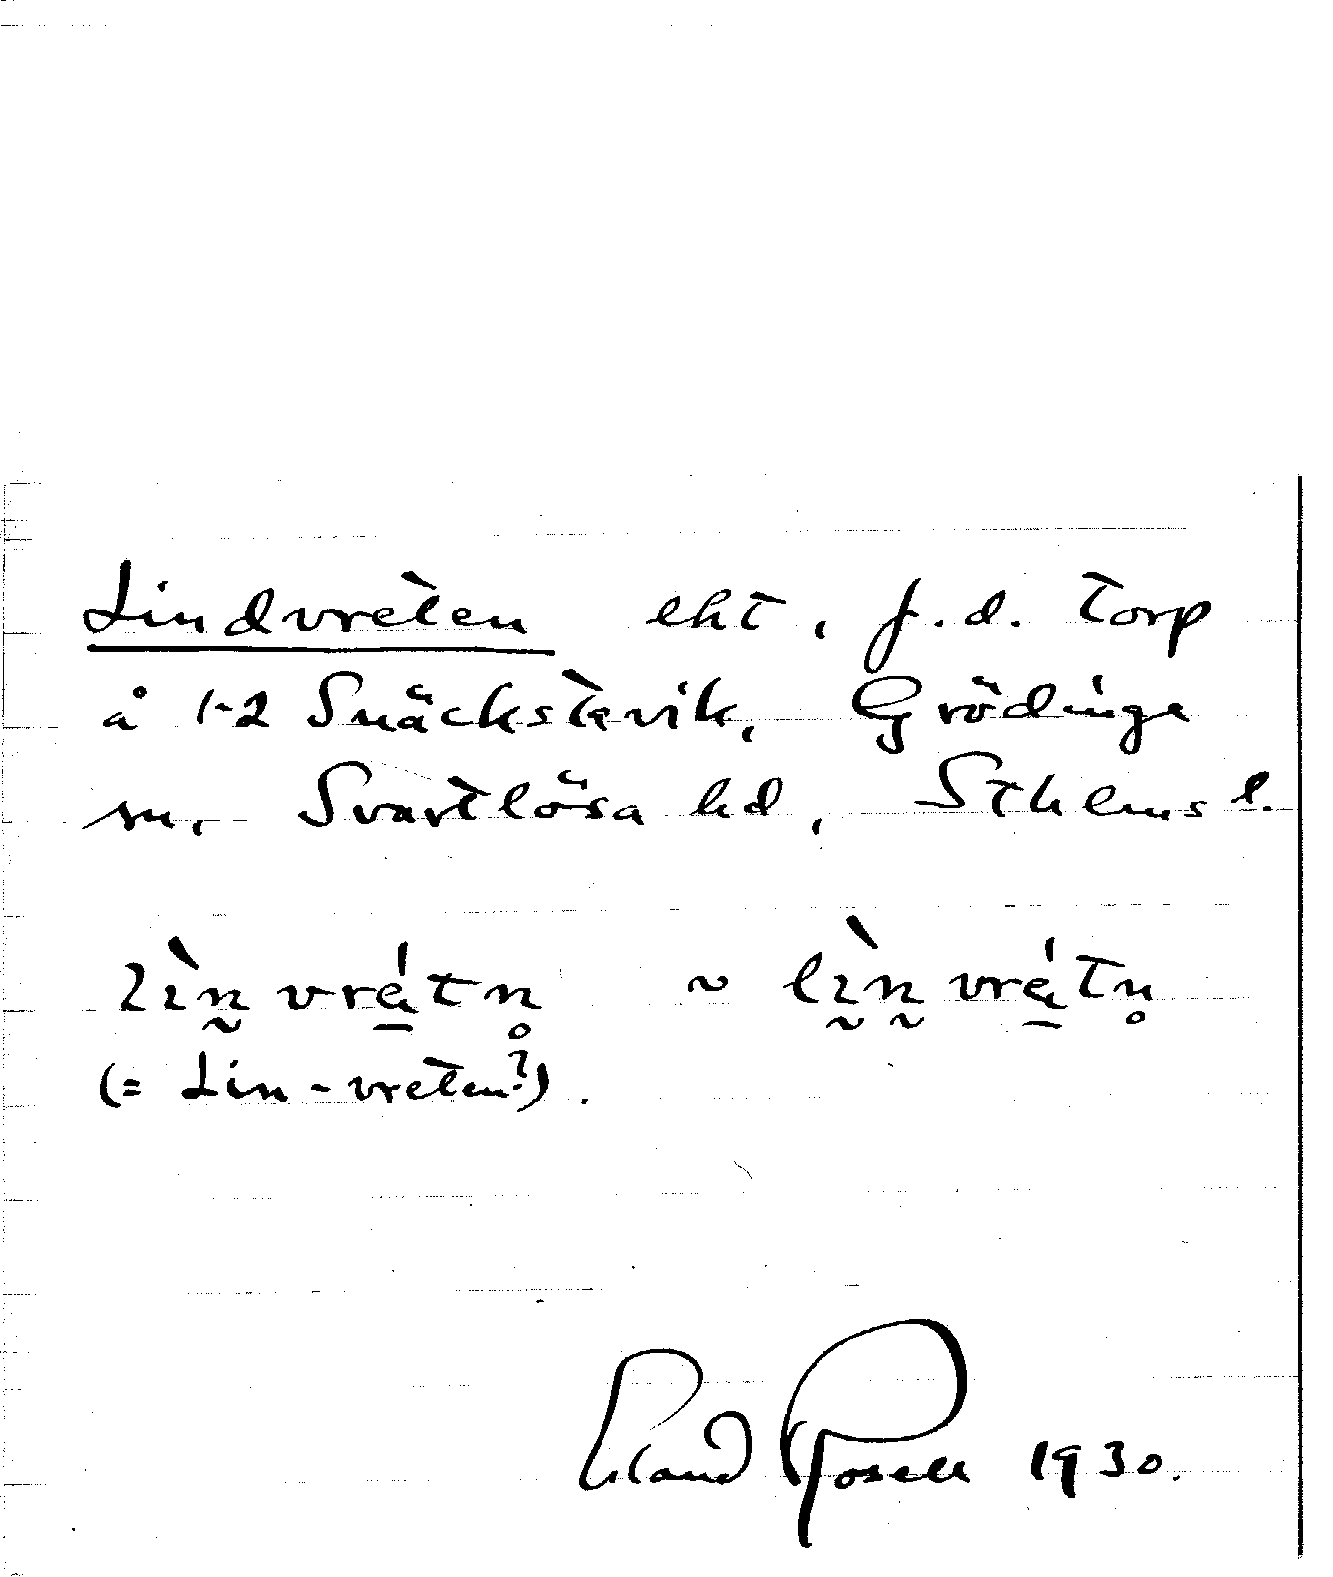 Lindvreten eht, f.d. torp
å 1-2 Snäckstavik, Grödinge
sn, Svartlösa hd, Sthlms l.
lɪ̀n̰ vrét̠n̥ ~ lɪ̰̀n̰ vrét̠n̥
(= Lin-vreten?).
Erland Rosell 1930.